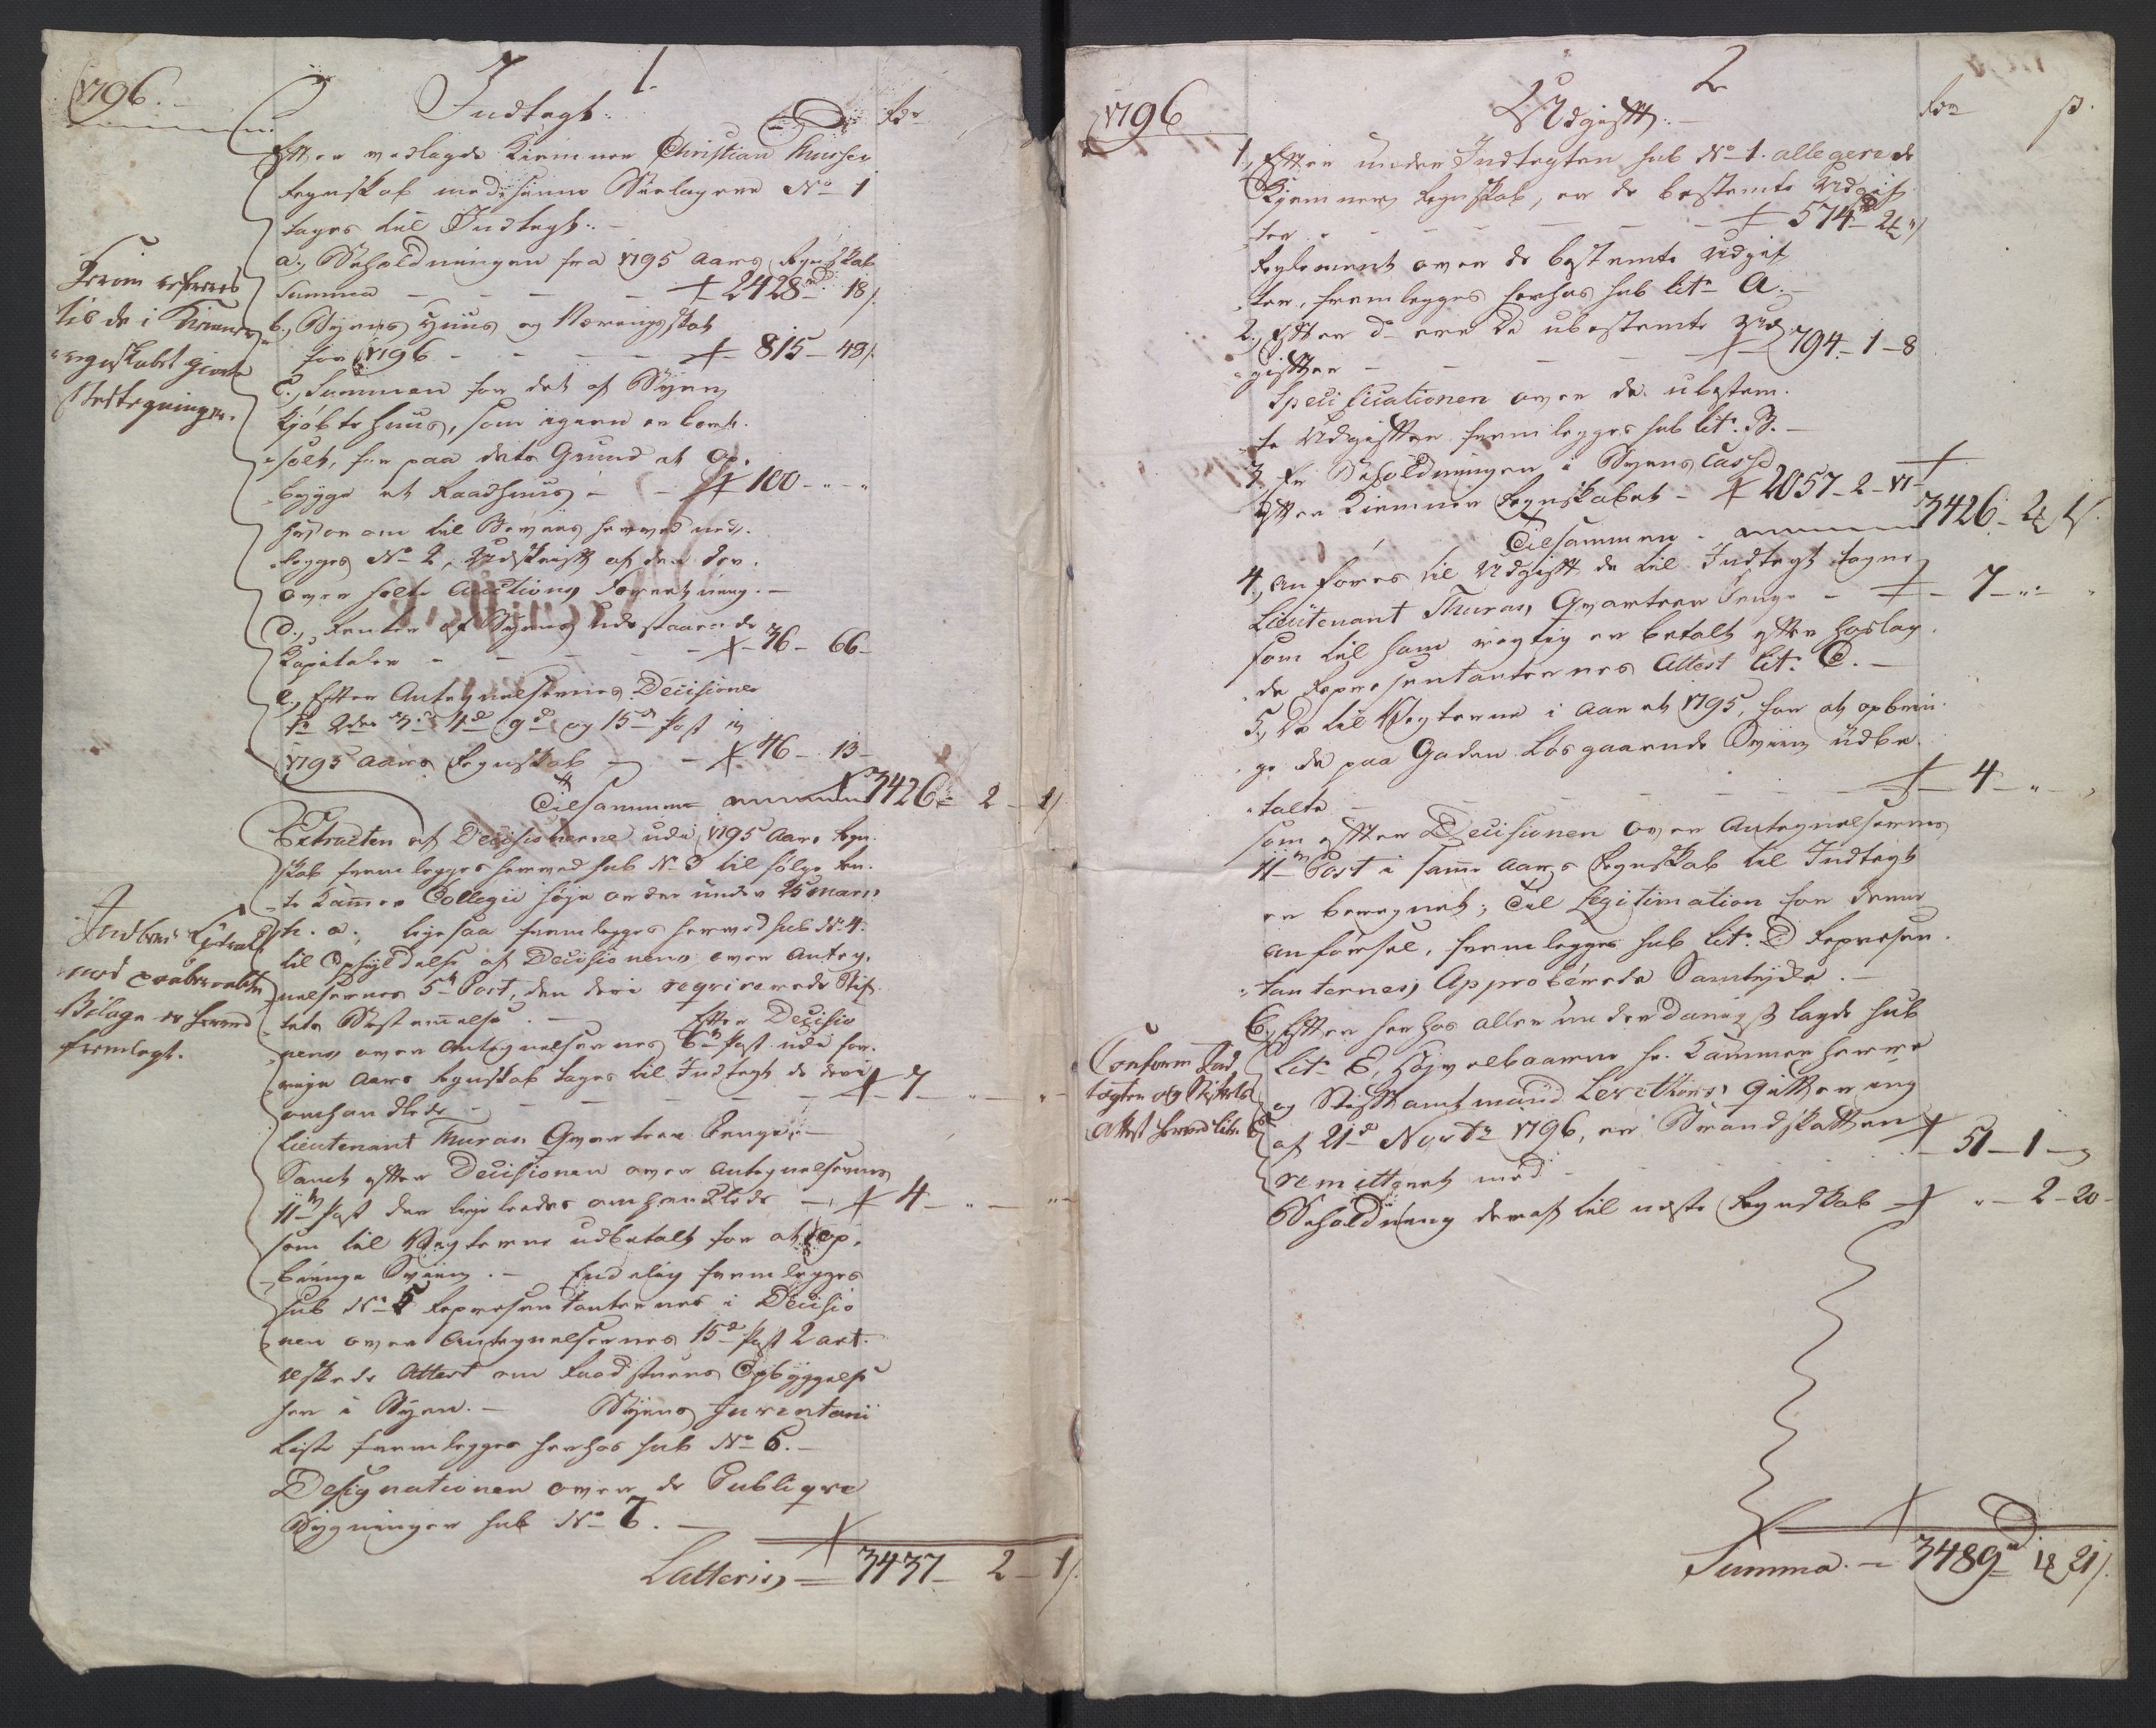 1796.
1.
Indtegt.
Rdr
Efter vedlagde Kiemner Christian
Regnskab med sinne Bielagere No 1
tages til Indtegt.
a., Beholdningen fra 1795 Aars Regnskab
Summa - - - 2428 rd 18 s
b., Byens Huus og Næringsskat
for 1796 - - - - 815 - 48 s
C., Summen for det af Byen
Kjøbte Huus, som igien er bort-
solt, for paa dets Grund at op-
bygge et Raadhuus - - 100 - " - "
hvorom til Beviis herved ned-
legges No 2, Udskrift af den der-
over holte Auctions Forretning. -
d., Renter af Byens udestaaende
Kapitaler - - - - - 36 - 66 -
e., Efter Antegnelsernes Decisioner
2den 3die 4de 9de og 15de Post i
1795 Aars Regnskab - - 46 - 13 -
Tilsammen 3426 - 2 - 1 s
Extracten af Decisionerne udi 1795 Aars Regn-
skab fremlegges herved sub No 3 til følge Ren-
te Kammer Collegii høje order under 25 Marti
h. a., ligesaa fremlegges herved sub No 4.
til Opfyldelse af Decisionens over Anteg-
nelsernes 5te Post, den deri reqvirerede Stif-
tets Bestemmelse. - Efter Decisio
nens over Antegnelsernes 6te Post udi for-
rige Aars Regnskab tages til Indtegt de deri
omhandlede - - - - - 7 - " - "
Lieutenant Thuras Qvarteer Penge. -
Samt efter Decisionen over Antegnelsernes
11te Post der ligeledes omhandlede - 4 - " - "
som til Vegterne udbetalt for at op-
bringe Sviin. - Endelig fremlegges
sub No 5 Representanternes i Decisio
nen over Antegnelsernes 15de Post 2 art.
eskede Attest om Raadstuens Opbyggelse
her i Byen. - Byens Inventarii
Liste fremlegges herhos sub No 6. -
Designationen over de Publiqve
Bygninger sub No 7. -
Latteris - 3437 - 2 - 1 s.
Herom refereres
til de i Kiemner
regnskabet giorte
Antegninger.
Indbem. Extract
med
Bilage er herved
fremlagt.
1796
2
Udgift.
Rdr s.
1., Efter under Indtegten sub No 1. allegerede
Kjemners Regnskab, er de bestemte Udgif-
ter - - - - - 574 rd 2
Reglement over de bestemte Udgif-
ter, fremlegges herhos sub Litr A. -
2., Efter do ere de ubestemte Ud-
gifter - - - - 794 - 1 - 8
Specificationen over de ubestem-
te Udgifter fremlegges sub Litr. B. -
3, Er Beholdningen i Byens Cassa
efter Kiemner Regnskabet - 2057 - 2 - 11 -
Tilsammen - 3426
4., anføres til Udgift de til Indtegt tagne
Lieutenant Thuras, Qvarteer Penge - - 7 - " - "
som til ham rigtig er betalt efter hoslag-
de Representanternes Attest Litr. C. -
5., De til Vegterne i Aaret 1795, for at opbrin-
ge de paa Gaden Løsgaaende Sviin udbe-
talte - - - - - 4 - " -
som efter Decisionen over Antegnelsernes
11te Post i samme Aars Regnskab til Indtegt
er beregnet; Til Legitimation for denne
anførsel, fremlegges sub Litr. D Represen-
tanternes Approberede Samtykke. -
6., Efter herhos allerunderdanigst lagde sub
Litr E, Højvelbaarne Hr. Kammerherre
og Stiftamtmand Levetzows qvittering
af 21de Novbr 1796, er Brandskatten
remitteret med - - 51 - 1 -
Beholdning deraf til neste Regnskab - " - 2 - 20 -
Conform Ind
tegten og Stiftets
Attest herved Litr. E
Summa. - 3489 rd 1 21 s.